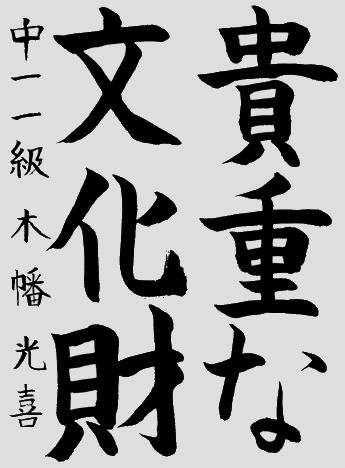 貴重な
文化財
中一一級木幡光喜